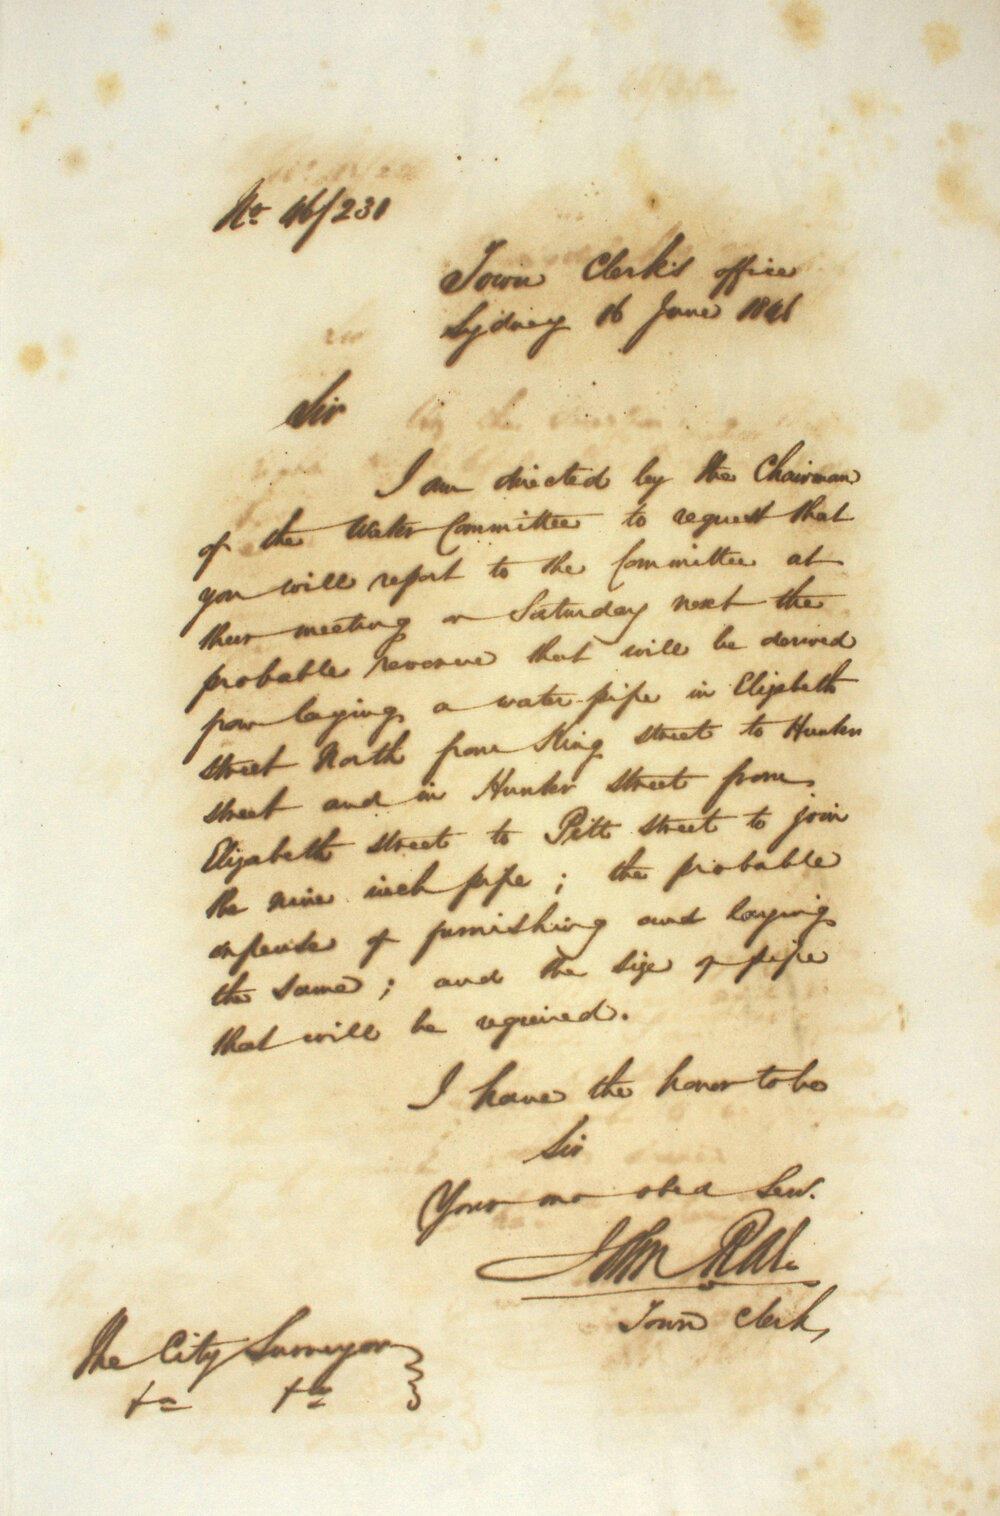 No 46/231
Town Clerk's office
Sydney 16 June 1846
Sir
I am directed by the Chairman
of the Water Committee to request that
you will report to the Committee at
their meeting on Saturday next the
probable revenue that will be derived
from laying a water pipe in Elizabeth
street North from King street to Hunter
street and in Hunter street from
Elizabeth street to Pitt street to join
the nine inch pipe ; the probable
expense of furnishing and laying
the same ; and the size of pipe
that will be required.
I have the honor to be
Sir
Your mo obed Serv.
John Rae
Town Clerk
The City Surveyor
&c &c